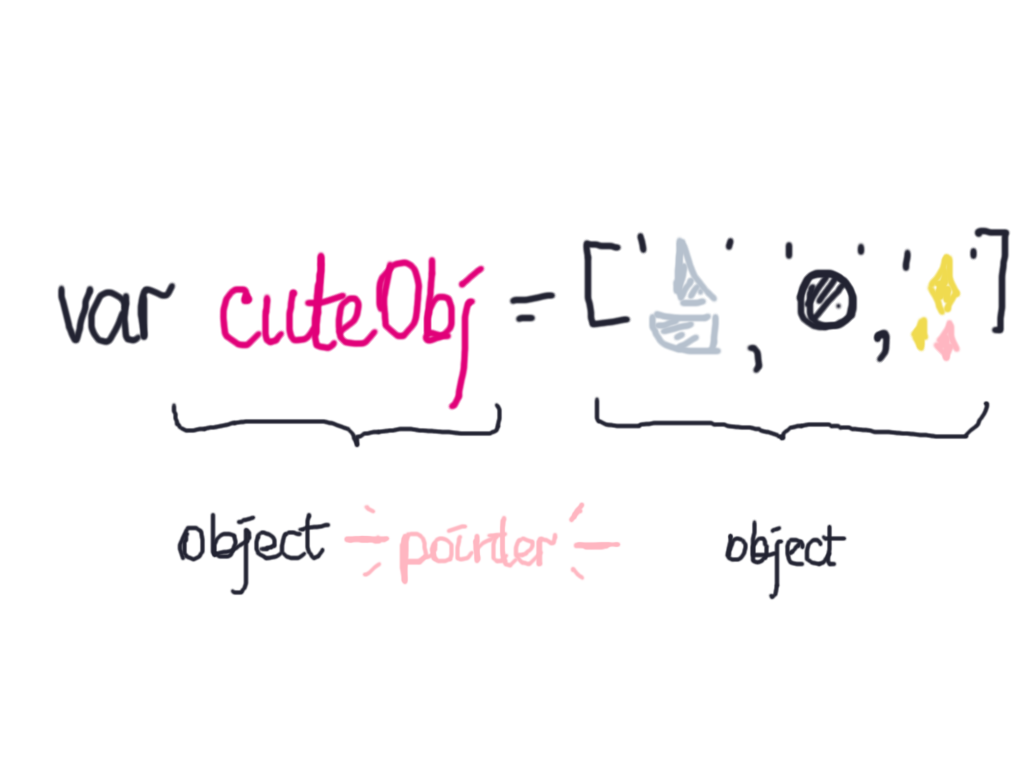 var cuteObj = ['⛵', '🌑', '✨']
object pointer object